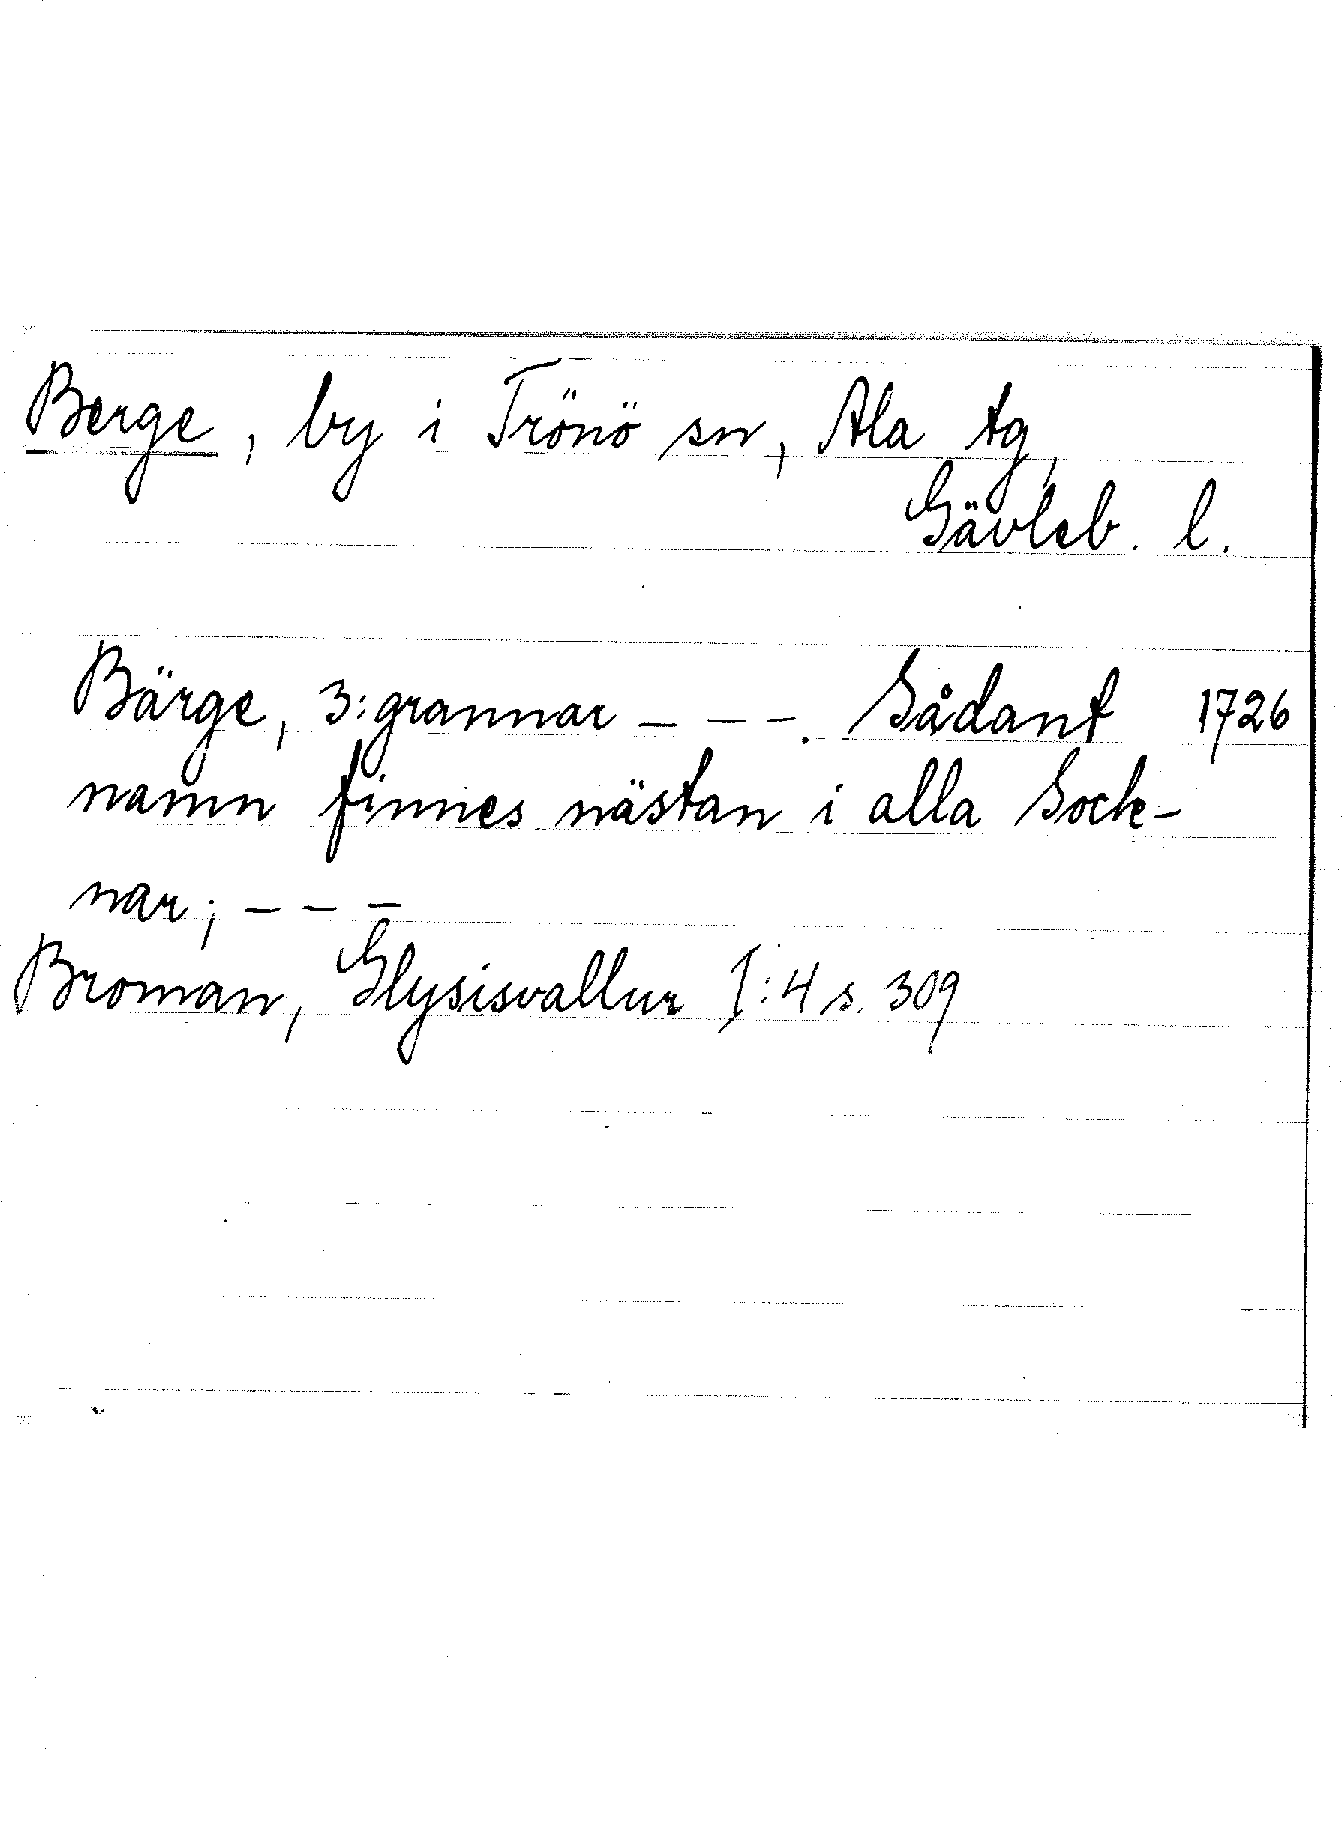 Berge, by i Trönö sn, Ala tg,
Gävleb. l.
Bärge, 3:grannar – – –. Sådant 1726
namn finnes nästan i alla Sock-
nar; – – –
Broman, Glysisvallur I:4 s. 309